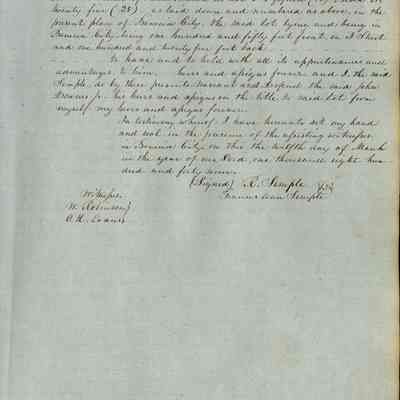 twenty five (25) as laid down and numbered as above, in the
present plan of Benicia City. The said lot lying and being in
Benicia City being one hundred and fifty feet front, on I Street
and one hundred and twenty five feet back
To have and to hold with all its appurtenances and
advantages to him heirs and assigns forever and I the said
Semple, do by these presents warrant and defend the said John
his heirs and assigns in the title to said lot from
myself my heirs and assigns forever.
In testimony whereof I have hereunto set my hand
and seal in the presence of the assisting witnesses
in Benicia City on this the twelfth day of March
in the year of our Lord, one thousand eight hun
dred and forty seven.
(Signed) R. Semple
Frances Ann Semple
Witness,
W. Robinson
A. H. Evans